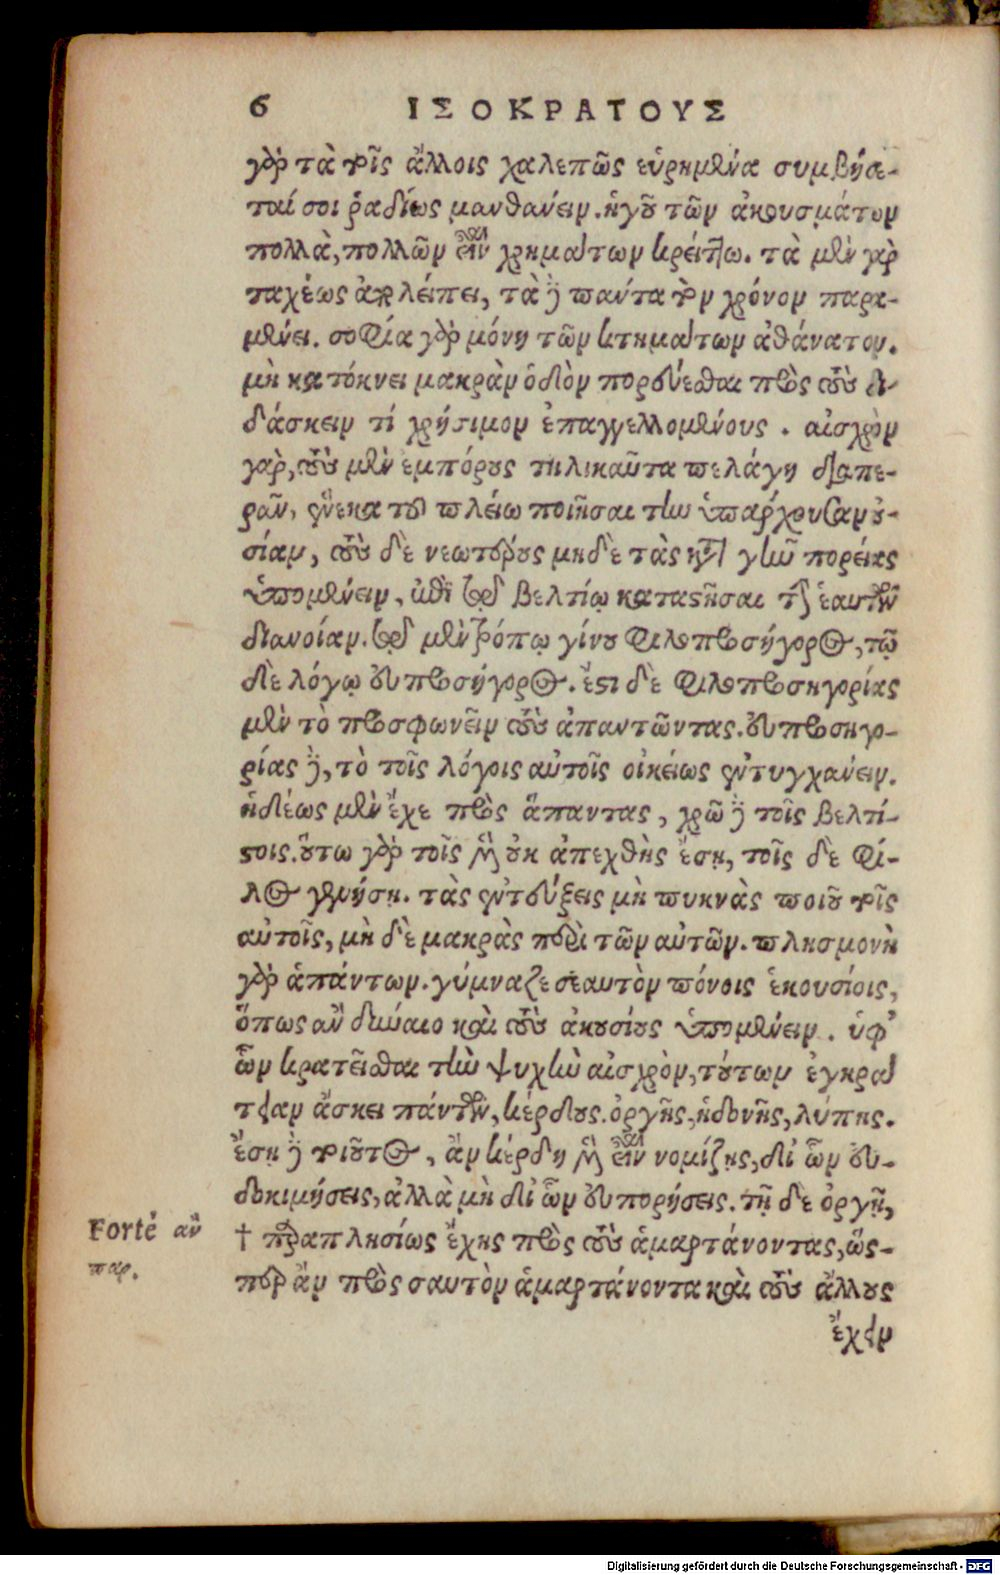 6 ΙΣΟΚΡΑΤΟΥΣ
γὰρ τὰ τοῖς ἄλλοις χαλεπῶς εὑρημένα συμβήσε-
ταί σοι ῥαδίως μανθάνειν. ἡγοῦ τῶν ἀκουσμάτων
πολλὰ, πολλῶν εἶναι χρημάτων κρείττω. τὰ μὲν γὰρ
ταχέως ἀπολείπει, τὰ δὲ παντα τὸν χρόνον παρα-
μένει. σοφία γὰρ μόνη τῶν κτημάτων ἀθάνατον.
μὴ κατόκνει μακρὰν ὁδὸν πορεύεσθαι πρὸς τοὺς δι-
δάσκειν τί χρήσιμον ἐπαγγελλομένους. αἰσχρὸν
γὰρ, τοὺς μὲν ἐμπόρους τηλικαῦτα πελάγη διαπε-
ρᾶν, ἕνεκα τοῦ πλείω ποιῆσαι τὴν ὑπαρχουσαν οὐ-
σίαν, τοὺς δὲ νεωτέρους μηδὲ τὰς κατὰ γῆν πορείας
ὑπομένειν, ἐπὶ τῷ βελτίω καταστῆσαι τὴν ἑαυτῶν
διανοίαν. τῷ μὲν τρόπῳ γίνου φιλοπροσήγορος, τῷ
δὲ λόγῳ εὐπροσήγορος. ἔστι δὲ φιλοπροσηγορίας
μὲν τὸ προσφωνεῖν τοὺς ἀπαντῶντας. εὐπροσηγο-
ρίας δὲ, τὸ τοῖς λόγοις αὐτοῖς οἰκείως ἐντυγχανειν.
ἡδέως μὲν ἔχε πρὸς ἅπαντας, χρῶ δὲ τοῖς βελτί-
στοις. οὕτω γὰρ τοῖς μὲν οὐκ ἀπεχθὴς ἔσῃ, τοῖς δὲ φί-
λος γενήσῃ. τὰς ἐντεύξεις μὴ πυκνὰς ποιοῦ τοῖς
αὐτοῖς, μὴ δὲ μακρὰς περὶ τῶν αὐτῶν. πλησμονὴ
γὰρ ἁπάντων. γύμναζε σεαυτὸν πόνοις ἑκουσίοις,
ὅπως ἂν δύναιο καὶ τοὺς ἀκουσίους ὑπομένειν. ὑφ'
ὧν κρατεῖσθαι τὴν ψυχὴν αἰσχρὸν, τούτων ἐγκρά
τειαν ἄσκει πάντων, κέρδους. ὀργῆς, ἡδονῆς, λύπης.
ἔσῃ δὲ τοιοῦτος, ἂν κέρδη μὲν εἶναι νομίζῃς, δι' ὧν εὐ-
δοκιμήσεις, ἀλλὰ μὴ δι' ὧν εὐπορήσεις. τῇ δὲ ὀργῇ,
Forté ἂν † παραπλησίως ἔχῃς πρὸς τοὺς ἁμαρτάνοντας, ὥς-
παρ. περ ἂν πρὸς σαυτὸν ἁμαρτάνοντα καὶ τοὺς ἄλλους
ἔχειν
Digitalisierung gefördert durch die Deutsche Forschungsgemeinschaft - DFG